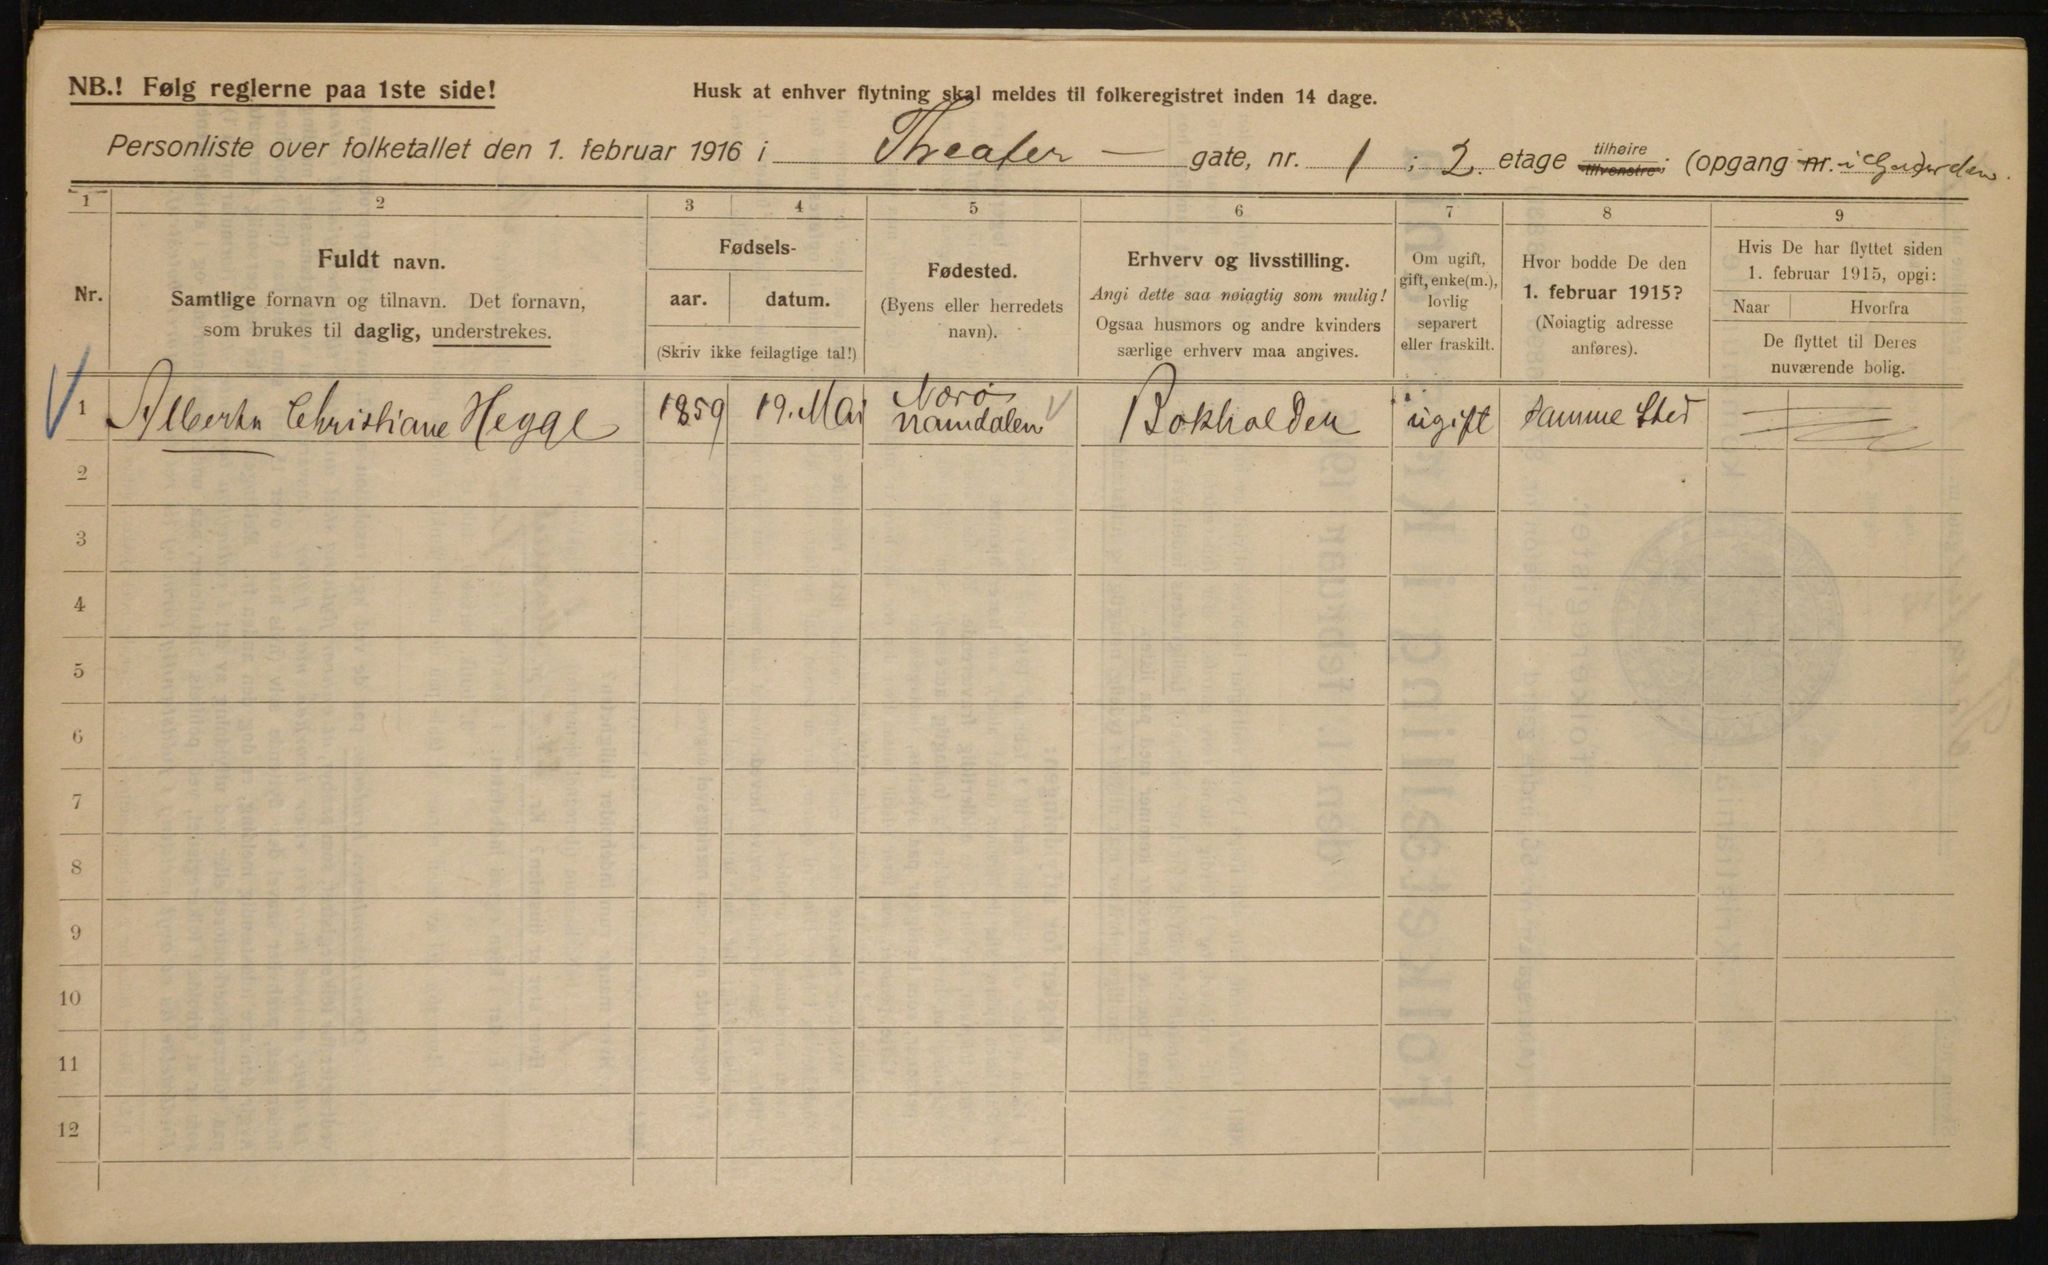 NB.! Følg reglerne paa 1ste side!
Husk at enhver flytning skal meldes til folkeregistret inden 14 dage.
Personliste over folketallet den 1. februar 1916 i Theater - gate, nr. 1 ; 2. etage tilhøire tilvenstre; (opgang nr. i
1 2 3 4 5 6 7 8 9
Nr.
Fuldt navn.
Samtlige fornavn og tilnavn. Det fornavn,
som brukes til daglig, understrekes.
Fødsels-
aar. datum.
(Skriv ikke feilagtige tal!)
Fødested.
(Byens eller herredets
navn).
Erhverv og livsstilling.
Angi dette saa nøiagtig som mulig!
Ogsaa husmors og andre kvinders
særlige erhverv maa angives.
Om ugift,
gift, enke(m.),
lovlig
separert
eller fraskilt.
Hvor bodde De den
1. februar 1915?
(Nøiagtig adresse
anføres).
Hvis De har flyttet siden
1. februar 1915, opgi:
Naar Hvorfra
De flyttet til Deres
nuværende bolig.
1 Alberta Christiane Hegge 1859 19. Mai Nærø Namdalen Bokholder ugift samme Sted
2
3
4
5
6
7
8
9
10
11
12